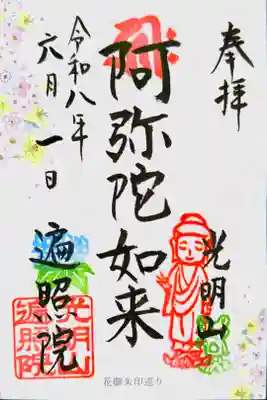 奉拝
光明山
阿弥陀如来
令和八年
六月一日
遍照院
光明山
遍照院
花御朱印巡り